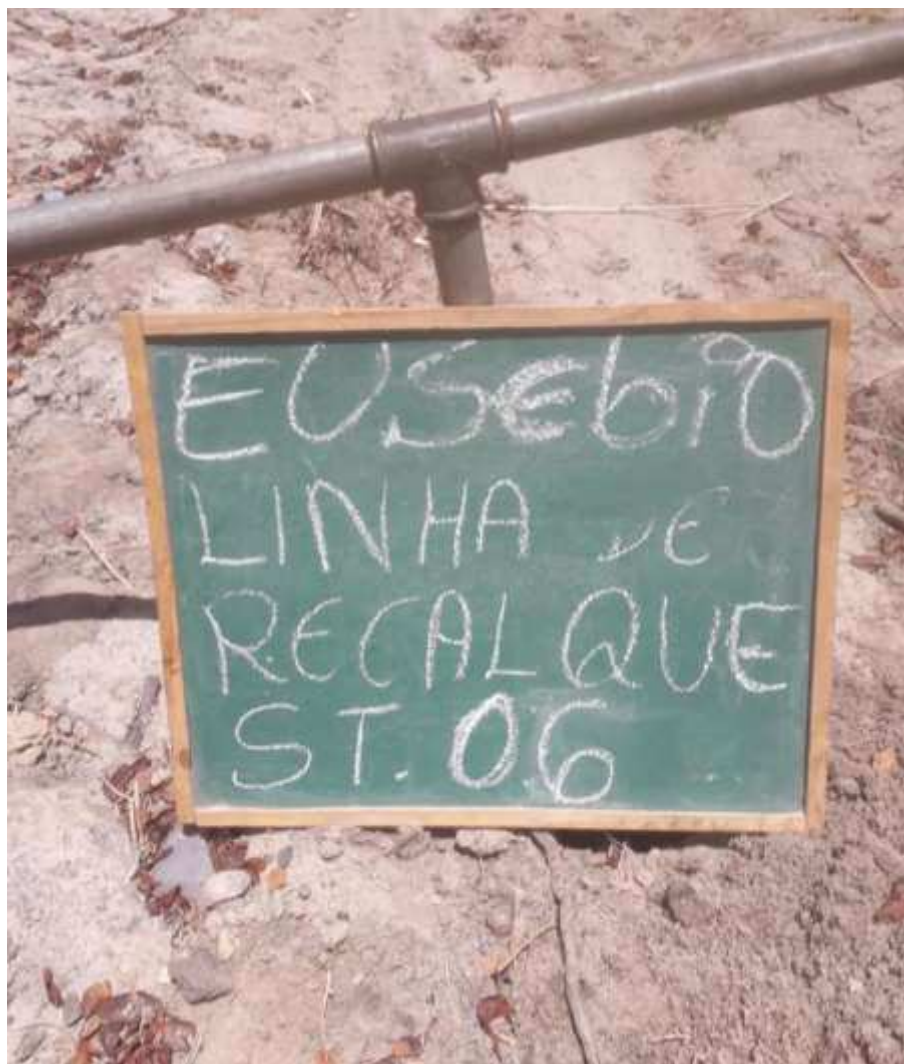 EUSEbiO
LINHA DE
RECALQUE
ST. 06